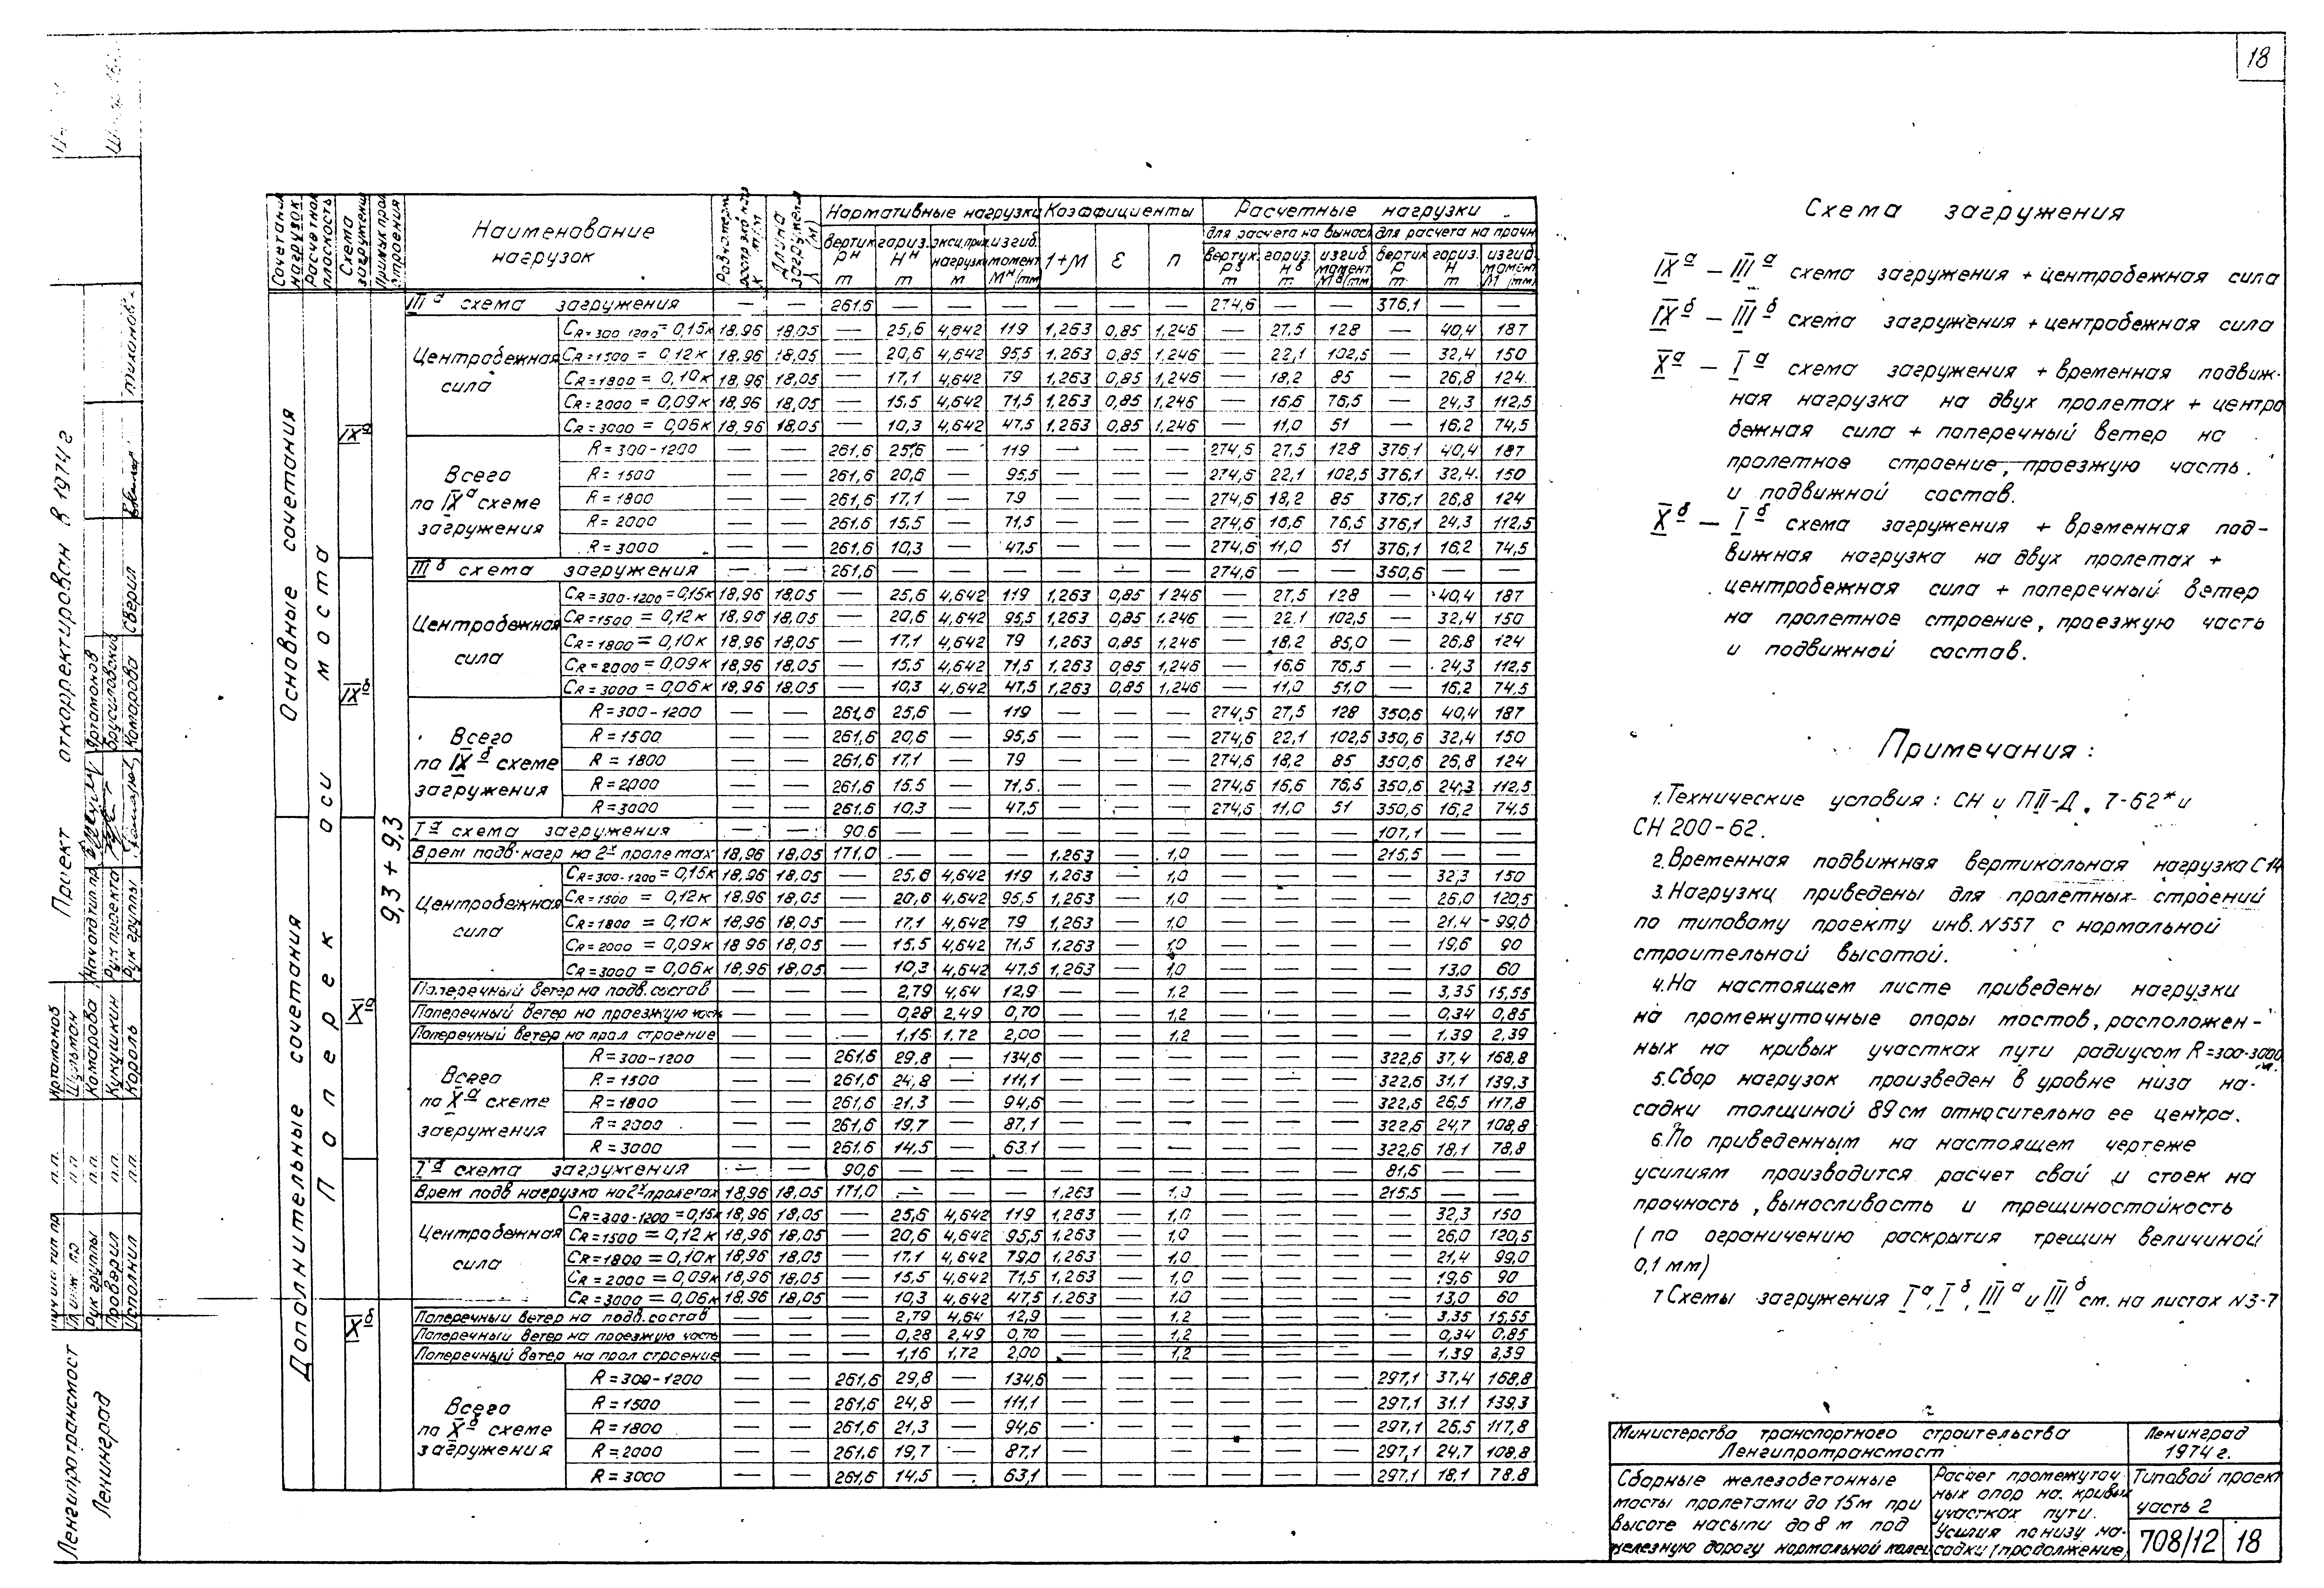 18
Сочетания нагрузок
Расчетная плоскость
Схема загружения
Наименование нагрузок
Нормативные нагрузки Коэффициенты Расчетные нагрузки
для расчета на вынос. для расчета на прочн
вертик. Pн т
гориз. Hн т
эксц. прил. нагрузки м
изгиб. момент Mн (тм)
1+М ε n
вертик. Pв т
гориз. Hв т
изгиб. момент Мв (тм)
вертик. P т
гориз. H т
изгиб. момент М (тм)
Основные сочетания
Дополнительные сочетания
Поперек оси моста
9,3 + 9,3
IXа
IIIа схема загружения — — 261.6 — — — — — — 274,6 — — 376,1 — —
Центробежная сила
CR=300-1200 = 0,15к 18,96 18,05 — 25,6 4,642 119 1,263 0,85 1,246 — 27,5 128 — 40,4 187
CR=1500 = 0,12к 18,96 18,05 — 20,6 4,642 95,5 1,263 0,85 1,246 — 22,1 102,5 — 32,4 150
CR=1800 = 0,10к 18,96 18,05 — 17,1 4,642 79 1,263 0,85 1,246 — 18,2 85 — 26,8 124
CR=2000 = 0,09к 18,96 18,05 — 15,5 4,642 71,5 1,263 0,85 1,246 — 16,6 76,5 — 24,3 112,5
CR=3000 = 0,06к 18,96 18,05 — 10,3 4,642 47,5 1,263 0,85 1,246 — 11,0 51 — 16,2 74,5
Всего по IXа схеме загружения
R=300-1200 — — 261,6 25,6 — 119 — — — 274,6 27,5 128 376,1 40,4 187
R=1500 — — 261,6 20,6 — 95,5 — — — 274,6 22,1 102,5 376,1 32,4 150
R=1800 — — 261,6 17,1 — 79 — — — 274,6 18,2 85 376,1 26,8 124
R=2000 — — 261,6 15,5 — 71,5 — — — 274,6 16,6 76,5 376,1 24,3 112,5
R=3000 — — 261,6 10,3 — 47,5 — — — 274,6 11,0 51 376,1 16,2 74,5
IXб
IIIб схема загружения — — 261,6 — — — — — — 274,6 — — 350,6 — —
Центробежная сила
CR=300-1200 = 0,15к 18,96 18,05 — 25,6 4,642 119 1,263 0,85 1 246 — 27,5 128 — 40,4 187
CR=1500 = 0,12к 18,96 18,05 — 20,6 4,642 95,5 1,263 0,85 1.246 — 22.1 102,5 — 32,4 150
CR=1800 = 0,10к 18,96 18,05 — 17,1 4,642 79 1,263 0,85 1,246 — 18,2 85,0 — 26,8 124
CR=2000 = 0,09к 18,96 18,05 — 15,5 4,642 71,5 1,263 0,85 1,246 — 16,6 76,5 — 24,3 112,5
CR=3000 = 0,06к 18,96 18,05 — 10,3 4,642 47,5 1,263 0,85 1,246 — 11,0 51,0 — 16,2 74,5
Всего по IXб схеме загружения
R=300-1200 — — 261,6 25,6 — 119 — — — 274,5 27,5 128 350,6 40,4 187
R=1500 — — 261,6 20,6 — 95,5 — — — 274,6 22,1 102,5 350,6 32,4 150
R=1800 — — 261,6 17,1 — 79 — — — 274,6 18,2 85 350,6 26,8 124
R=2000 — — 261,6 15,5 — 71,5 — — — 274,6 16,6 76,5 350,6 24,3 112,5
R=3000 — — 261,6 10,3 — 47,5 — — — 274,6 11,0 51 350,6 16,2 74,5
Xа
Iа схема загружения — — 90,6 — — — — — — — — — 107,1 — —
Врем подв. нагр на 2х пролетах 18,96 18,05 171,0 — — — 1,263 — 1,0 — — — 215,5 — —
Центробежная сила
CR=300-1200 = 0,15к 18,96 18,05 — 25,6 4,642 119 1,263 — 1,0 — — — — 32,3 150
CR=1500 = 0,12к 18,96 18,05 — 20,6 4,642 95,5 1,263 — 1,0 — — — — 26,0 120,5
CR=1800 = 0,10к 18,96 18,05 — 17,1 4,642 79 1,263 — 1,0 — — — — 21,4 99,0
CR=2000 = 0,09к 18 96 18,05 — 15,5 4,642 71,5 1,263 — 1,0 — — — — 19,6 90
CR=3000 = 0,06к 18,96 18,05 — 10,3 4,642 47,5 1,263 — 1,0 — — — — 13,0 60
Поперечный ветер на подв. состав — — — 2,79 4,64 12,9 — — 1,2 — — — — 3,35 15,55
Поперечный ветер на проезжую часть — — — 0,28 2,49 0,70 — — 1,2 — — — — 0,34 0,85
Поперечный ветер на прол строение — — — 1,16 1,72 2,00 — — 1,2 — — — — 1,39 2,39
Всего по Xа схеме загружения
R=300-1200 — — 261,6 29,8 — 134,6 — — — — — — 322,6 37,4 168,8
R=1500 — — 261,6 24,8 — 111,1 — — — — — — 322,6 31,1 139,3
R=1800 — — 261,6 21,3 — 94,6 — — — — — — 322,6 26,5 117,8
R=2000 — — 261,6 19,7 — 87,1 — — — — — — 322,6 24,7 108,8
R=3000 — — 261,6 14,5 — 63,1 — — — — — — 322,6 18,1 78,8
Xб
Iа схема загружения — — 90,6 — — — — — — — — — 81,6 — —
Врем подв нагрузка на 2х пролетах 18,96 18,05 171,0 — — — 1,263 — 1,0 — — — 215,5 — —
Центробежная сила
CR=300-1200 = 0,15к 18,96 18,05 — 25,6 4,642 119 1,263 — 1,0 — — — — 32,3 150
CR=1500 = 0,12к 18,96 18,05 — 20,6 4,642 95,5 1,263 — 1,0 — — — — 26,0 120,5
CR=1800 = 0,10к 18,96 18,05 — 17,1 4,642 79,0 1,263 — 1,0 — — — — 21,4 99,0
CR=2000 = 0,09к 18,96 18,05 — 15,5 4,642 71,5 1,263 — 1,0 — — — — 19,6 90
CR=3000 = 0,06к 18,96 18,05 — 10,3 4,642 47,5 1,263 — 1,0 — — — — 13,0 60
Поперечный ветер на подв. состав — — — 2,79 4,64 12,9 — — 1,2 — — — — 3,35 15,55
Поперечный ветер на проезжую часть — — — 0,28 2,49 0,70 — — 1,2 — — — — 0,34 0,85
Поперечный ветер на прол строение — — — 1,16 1,72 2,00 — — 1,2 — — — — 1,39 2,39
Всего по Xб схеме загружения
R=300-1200 — — 261,6 29,8 — 134,6 — — — — — — 297,1 37,4 168,8
R=1500 — — 261,6 24,8 — 111,1 — — — — — — 297,1 31,1 139,3
R=1800 — — 261,6 21,3 — 94,6 — — — — — — 297,1 26,5 117,8
R=2000 — — 261,6 19,7 — 87,1 — — — — — — 297,1 24,7 108,8
R=3000 — — 261,6 14,5 — 63,1 — — — — — — 297,1 18,1 78.8
Схема загружения
IXа – IIIа схема загружения + центробежная сила
IXб – IIIб схема загружения + центробежная сила
Xа – Iа схема загружения + временная подвиж-
ная нагрузка на двух пролетах + центро
бежная сила + поперечный ветер на
пролетное строение, проезжую часть
и подвижной состав.
Xб – Iб схема загружения + временная под-
вижная нагрузка на двух пролетах +
центробежная сила + поперечный ветер
на пролетное строение, проезжую часть
и подвижной состав.
Примечания:
1. Технические условия: СН и ПII-Д. 7-62* и
СН 200-62.
2. Временная подвижная вертикальная нагрузка С14
3. Нагрузки приведены для пролетных строений
по типовому проекту инв. N557 с нормальной
строительной высотой.
4. На настоящем листе приведены нагрузки
на промежуточные опоры мостов, расположен-
ных на кривых участках пути радиусом R=300-3000 м.
5. Сбор нагрузок произведен в уровне низа на-
садки толщиной 89 см относительно ее центра.
6. По приведенным на настоящем чертеже
усилиям производится расчет свай и стоек на
прочность, выносливость и трещиностойкость
(по ограничению раскрытия трещин величиной
0,1 мм)
7 Схемы загружения Iа, Iб, IIIа и IIIб см. на листах N3-7
Министерство транспортного строительства
Ленгипротрансмост
Ленинград
1974 г.
Сборные железобетонные
мосты пролетами до 15м при
высоте насыпи до 8 м под
железную дорогу нормальной колеи
Расчет промежуточ
ных опор на кривых
участках пути.
Усилия по низу на-
садки (продолжение)
Типовой проект
часть 2
708/12 18
Проект откорректирован в 1974 г
Нач отд тип. пр. Артамонов
Рук. проекта Брусиловский
Рук группы Комарова
Сверил Тихонов
Артамонов
Шульман
Рук группы п.п. Комарова
Проверил п.п. Кукушкин
Исполнил п.п. Король
Ленгипротрансмост
Ленинград